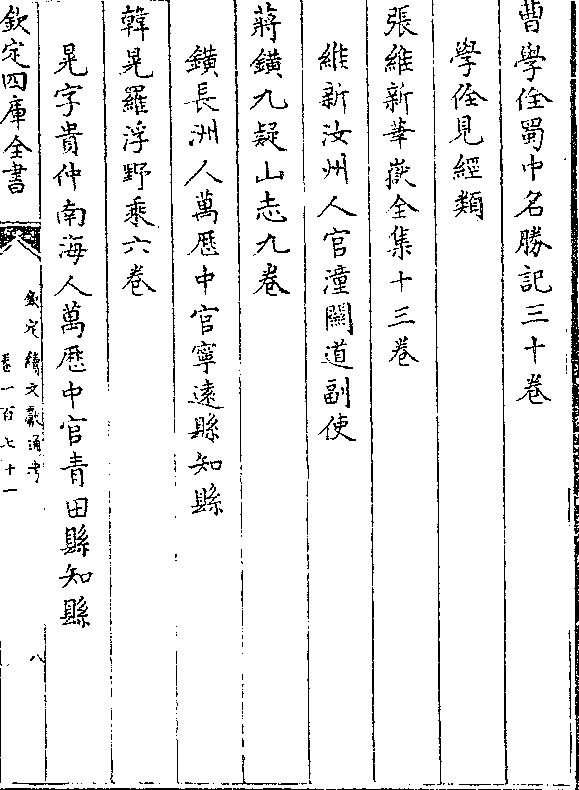 曹學佺蜀中名勝記三十卷
學佺見經類
張維新華嶽全集十三卷
維新汝州人官潼關道副使
蔣鐄九疑山志九卷
鐄長洲人萬厯中官寧遠縣知縣
韓晃羅浮野乘六卷
晃字貴仲南海人萬厯中官青田縣知縣
欽定四庫全書
欽定續文獻通考
卷一百七十一
八